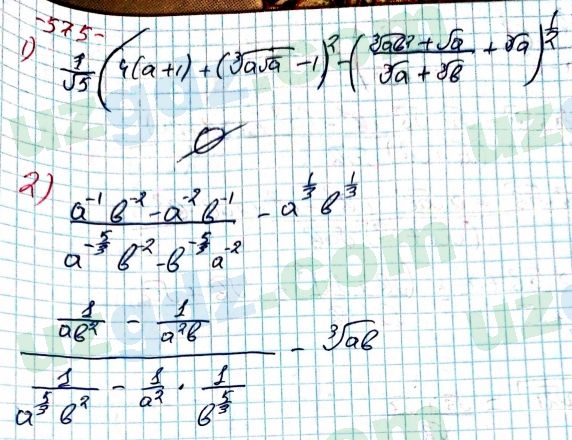 -575-
1) 1/√5 (4(a+1) + (∛(a√a) - 1)² - ((∛(ab²) + √a)/(∛a + ∛b) + ∛a)^(1/2)
∅
2) (a⁻¹ b⁻² - a⁻² b⁻¹)/(a^(-5/3) b⁻² - b^(-5/3) a⁻²) - a^(1/3) b^(1/3)
(1/(ab²) - 1/(a²b))/(1/(a^(5/3) b²) - 1/a² · 1/b^(5/3)) - ∛(ab)
uzgdz.com